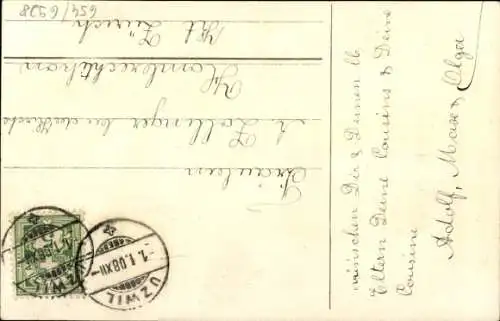 Fräulein
A. Zollinger bei der Kirche
Hombrechtikon
Kt. Zürich
wünschen Dir & Deinen lb
Eltern Deine Cousins & Deine
Cousine
Adolf, Max & Olga
UZWIL
1.1.08.XII
UZWIL
654/6928